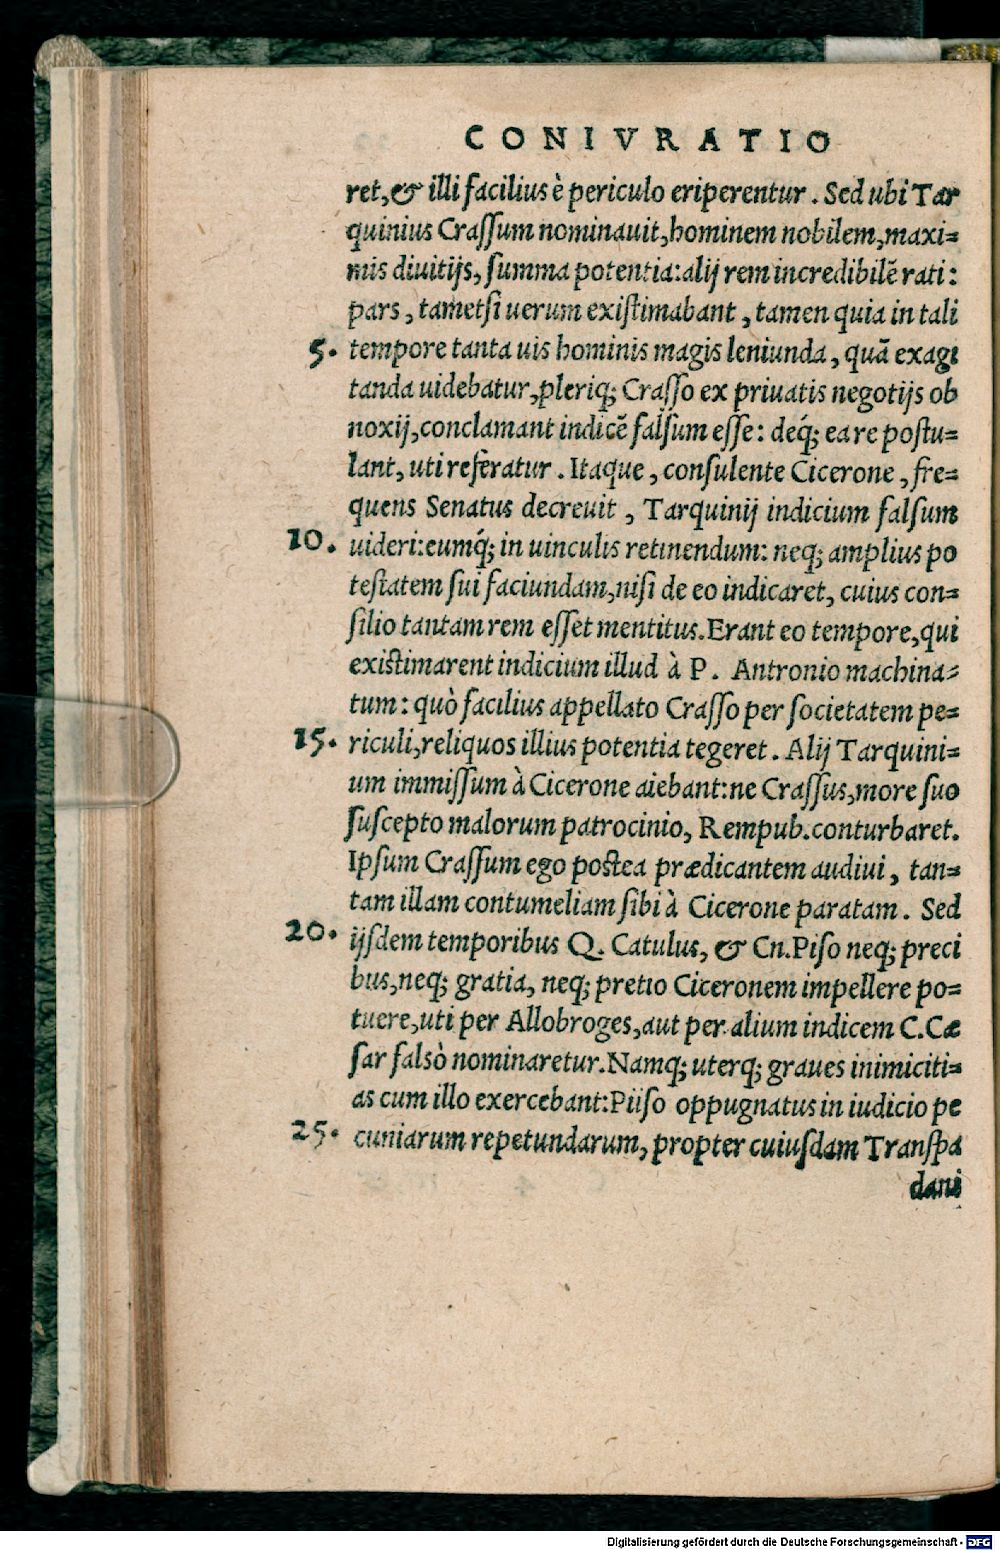 CONIVRATIO
ret, & illi facilius è periculo eriperentur. Sed ubi Tar
quinius Crassum nominauit, hominem nobilem, maxi=
mis diuitijs, summa potentia: alij rem incredibilẽ rati:
pars, tametsi uerum existimabant, tamen quia in tali
5. tempore tanta uis hominis magis leniunda, quã exagi
tanda uidebatur, pleriq; Crasso ex priuatis negotijs ob
noxij, conclamant indicẽ falsum esse: deq́; ea re postu=
lant, uti referatur. Itaque, consulente Cicerone, fre=
quens Senatus decreuit, Tarquinij indicium falsum
10. uideri: eumq́; in uinculis retinendum: neq; amplius po
testatem sui faciundam, nisi de eo indicaret, cuius con=
silio tantam rem esset mentitus. Erant eo tempore, qui
existimarent indicium illud à P. Antronio machina=
tum: quò facilius appellato Crasso per societatem pe=
15. riculi, reliquos illius potentia tegeret. Alij Tarquini=
um immissum à Cicerone aiebant: ne Crassus, more suo
suscepto malorum patrocinio, Rempub. conturbaret.
Ipsum Crassum ego postea prædicantem audiui, tan=
tam illam contumeliam sibi à Cicerone paratam. Sed
20. ijsdem temporibus Q. Catulus, & Cn. Piso neq; preci
bus, neq; gratia, neq; pretio Ciceronem impellere po=
tuere, uti per Allobroges, aut per alium indicem C. Cæ
sar falsò nominaretur. Namq; uterq; graues inimiciti=
as cum illo exercebant: Piiso oppugnatus in iudicio pe
25. cuniarum repetundarum, propter cuiusdam Transpa
dani
Digitalisierung gefördert durch die Deutsche Forschungsgemeinschaft - DFG